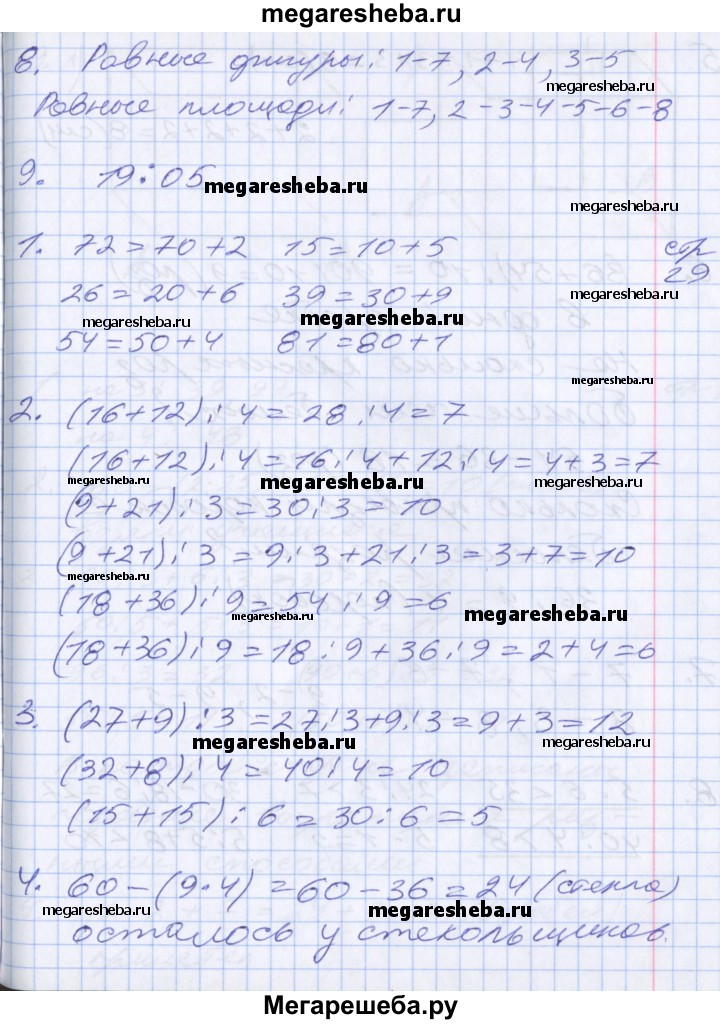 megaresheba.ru
8. Равные фигуры: 1-7, 2-4, 3-5
megaresheba.ru
Равные площади: 1-7, 2-3-4-5-6-8
9. 19:05
megaresheba.ru
megaresheba.ru
1. 72=70+2 15=10+5 стр 29
26=20+6 39=30+9
megaresheba.ru
megaresheba.ru megaresheba.ru
54=50+4 81=80+1
megaresheba.ru
2. (16+12):4=28:4=7
(16+12):4=16:4+12:4=4+3=7
megaresheba.ru megaresheba.ru megaresheba.ru
(9+21):3=30:3=10
(9+21):3=9:3+21:3=3+7=10
megaresheba.ru
(18+36):9=54:9=6
megaresheba.ru megaresheba.ru
(18+36):9=18:9+36:9=2+4=6
3. (27+9):3=27:3+9:3=9+3=12
megaresheba.ru megaresheba.ru
(32+8):4=40:4=10
(15+15):6=30:6=5
4. 60-(9·4)=60-36=24 (стекла)
megaresheba.ru megaresheba.ru
осталось у стекольщиков.
Мегарешеба.ру